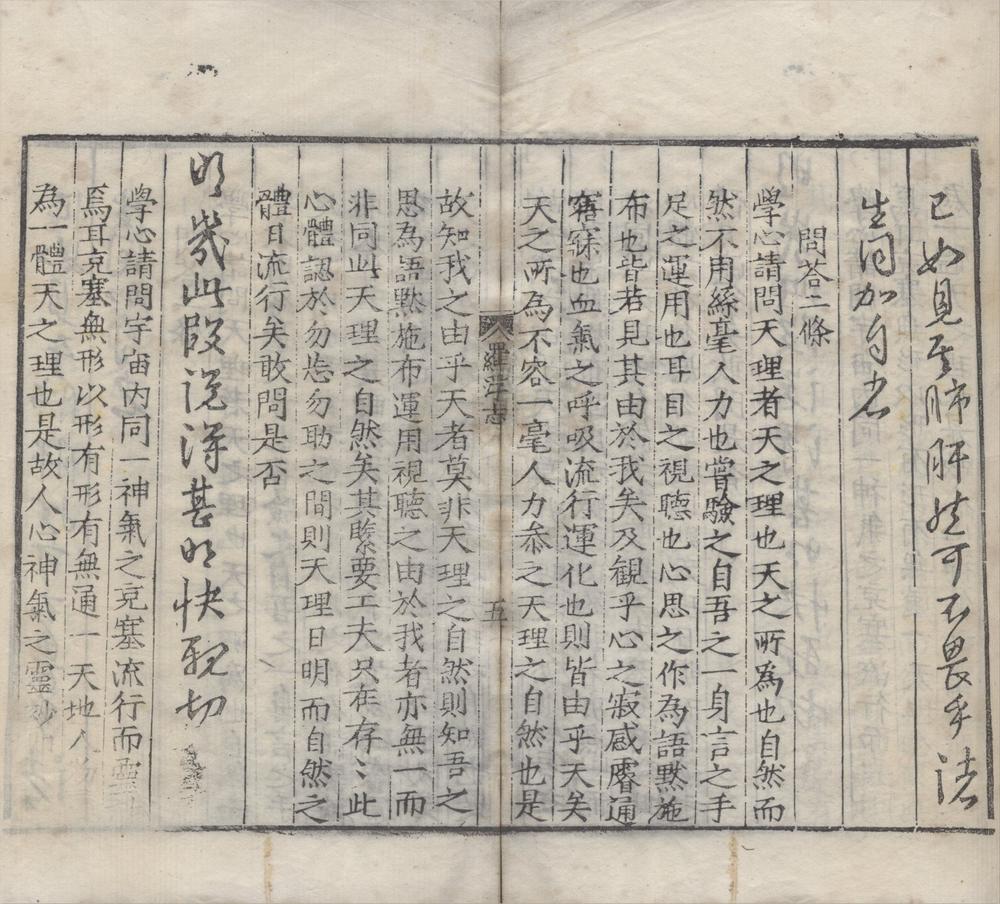 己如見其肺肝然可不畏乎諸
生同加勺
問荅二條
學心請問天理者天之理也天之所為也自然而
然不用絲毫人力也嘗驗之自吾之一身言之手
足之運用也耳目之視聽也心思之作為語默施
布也皆若見其由於我矣及観乎心之寂感睿通
寤寐也血氣之呼吸流行運化也則皆由乎天矣
天之所為不容一毫人力叅之天理之自然也是
羅浮志 五
故知我之由乎天者莫非天理之自然則知吾之
思為語默施布運用視聽之由於我者亦無一而
非同此天理之自然矣其緊要工夫只在存〻此
心體認於勿忘勿助之間則天理日明而自然之
體日流行矣敢問是否
明幾此段說得甚明快親切
學心請問宇宙内同一神氣之充塞流行而靈
焉耳充塞無形以形有形有無通一天地人
為一體天之理也是故人心神氣之靈妙